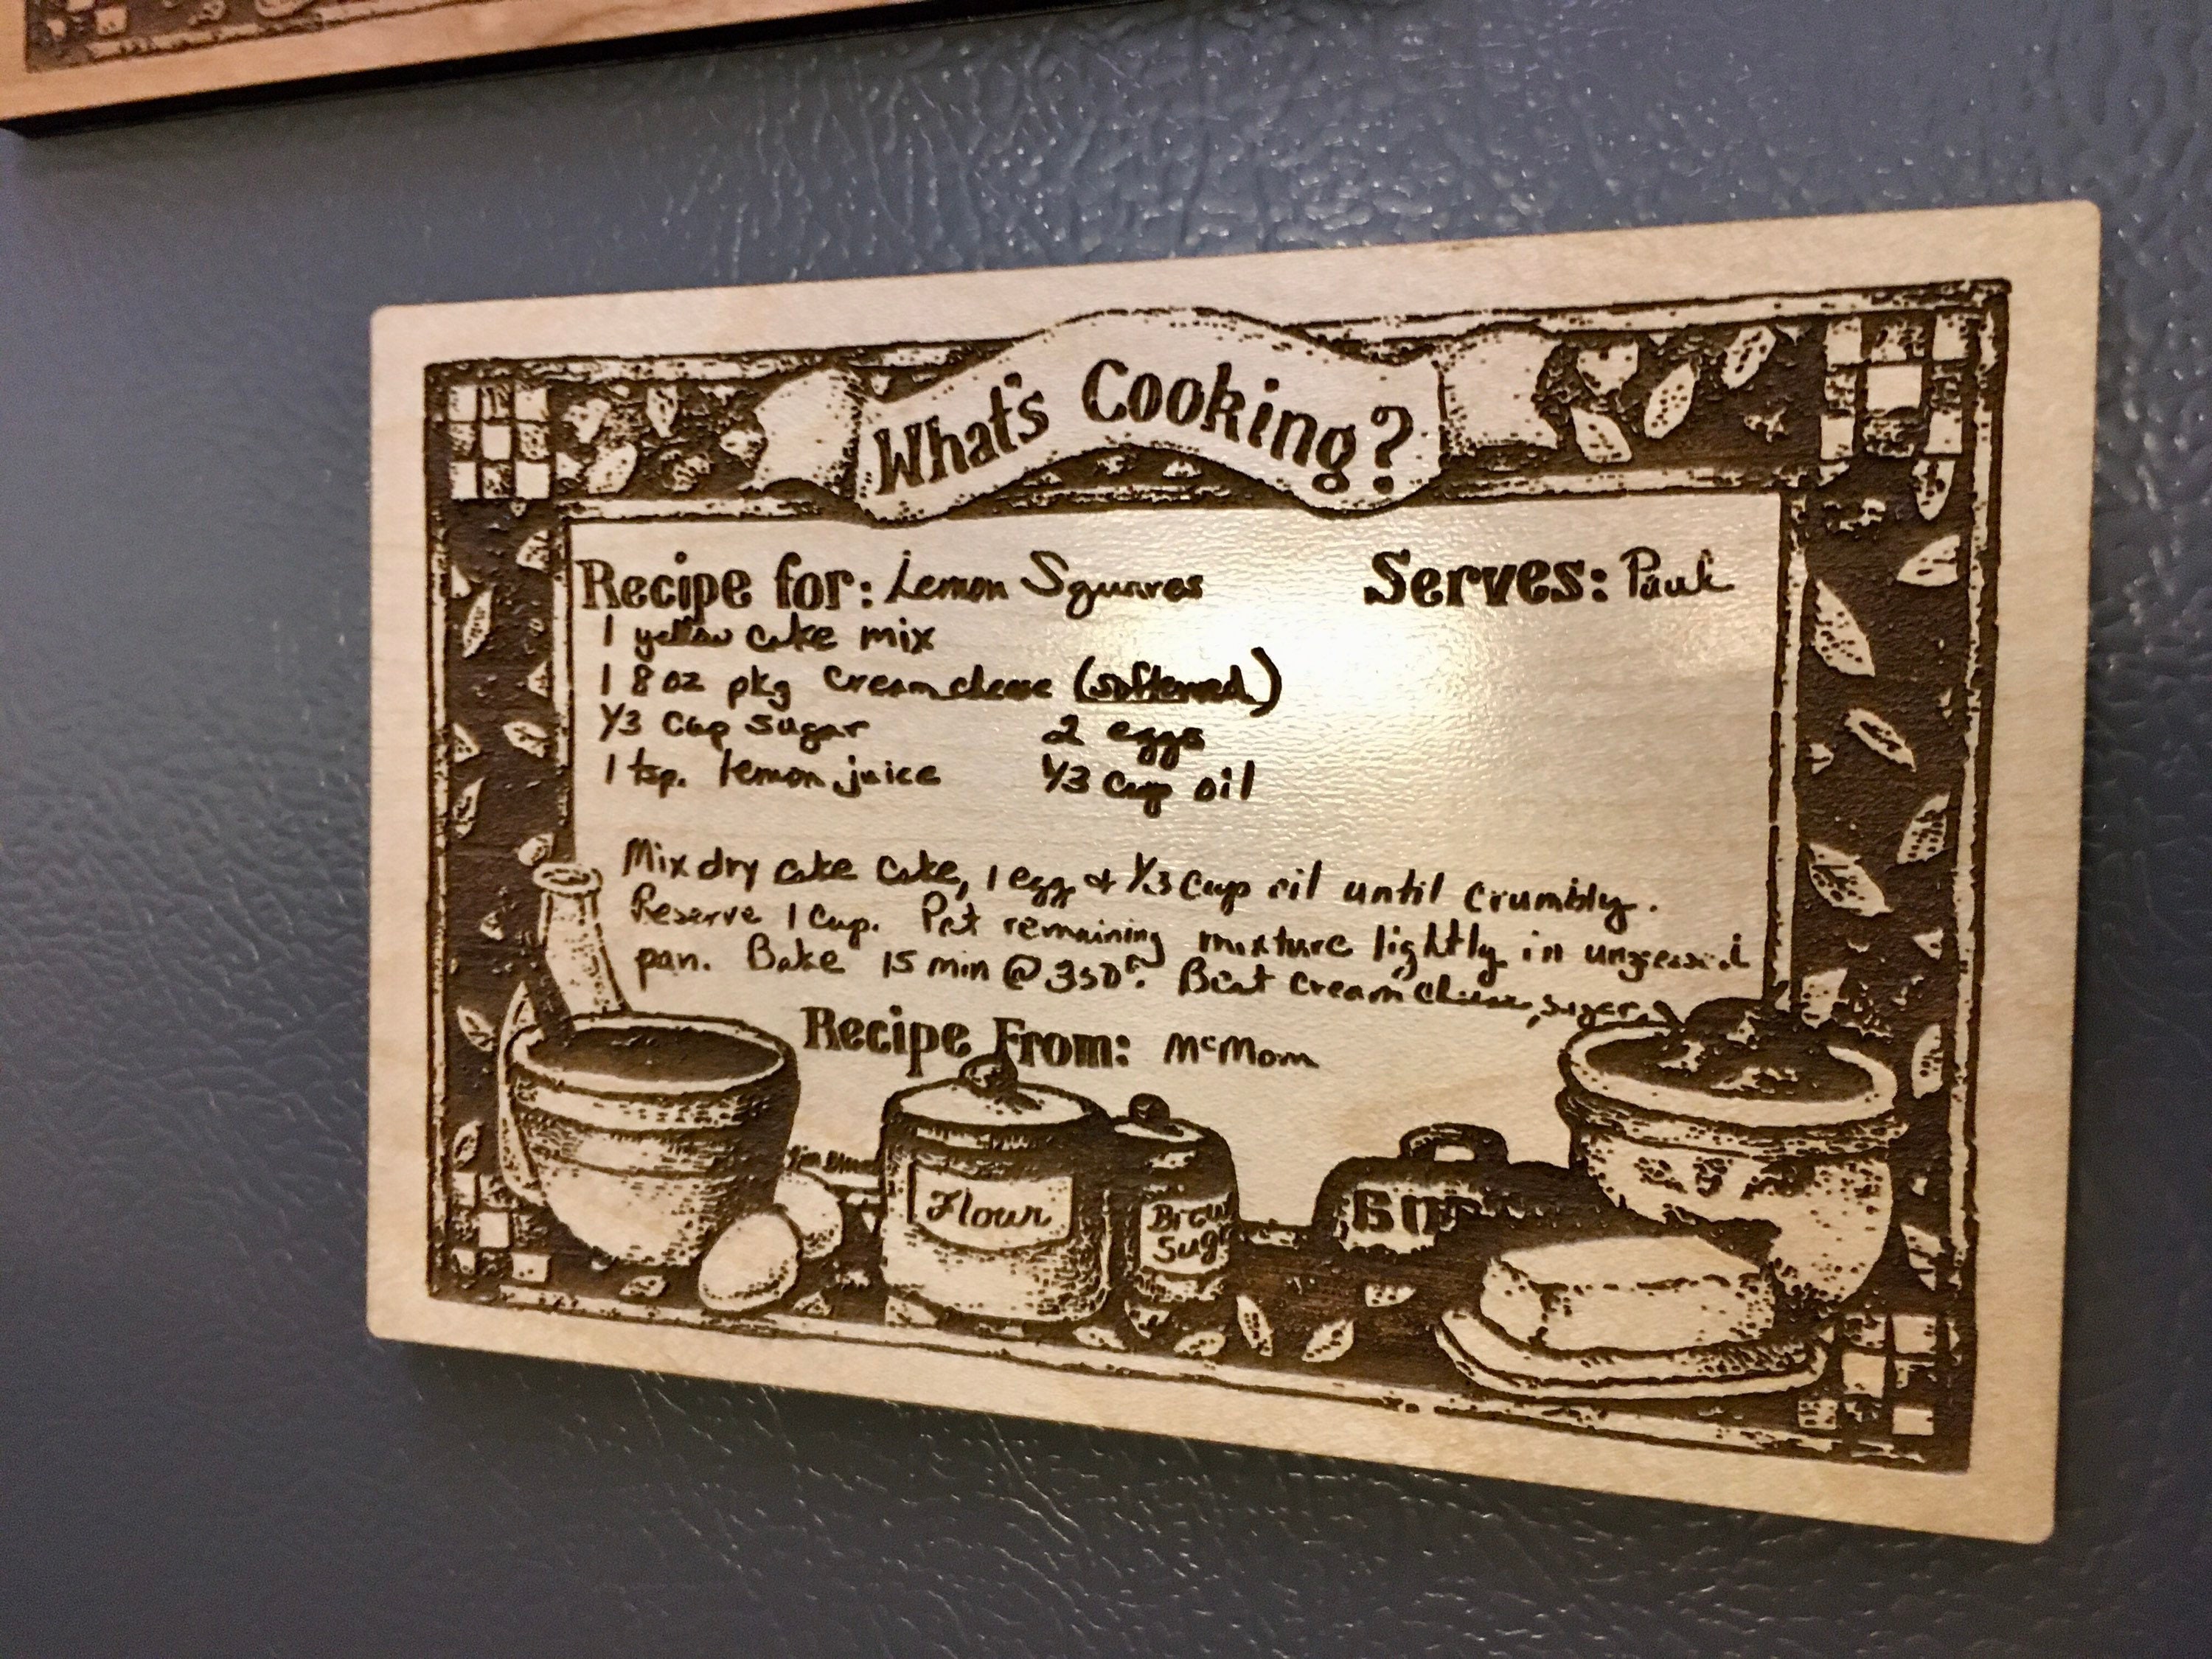 What's Cooking?
Recipe for: Lemon Squares Serves: Paul
1 yellow cake mix
1 8 oz pkg cream cheese (softened)
1/3 cup sugar 2 eggs
1 tsp. lemon juice 1/3 cup oil
Mix dry cake cake, 1 egg & 1/3 cup oil until crumbly.
Reserve 1 cup. Pat remaining mixture lightly in ungreased
pan. Bake 15 min @ 350°. Beat cream cheese, sugar,
Recipe From: McMom
Flour
Brow
Sug